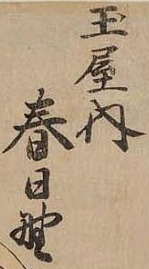 玉屋内
春日野